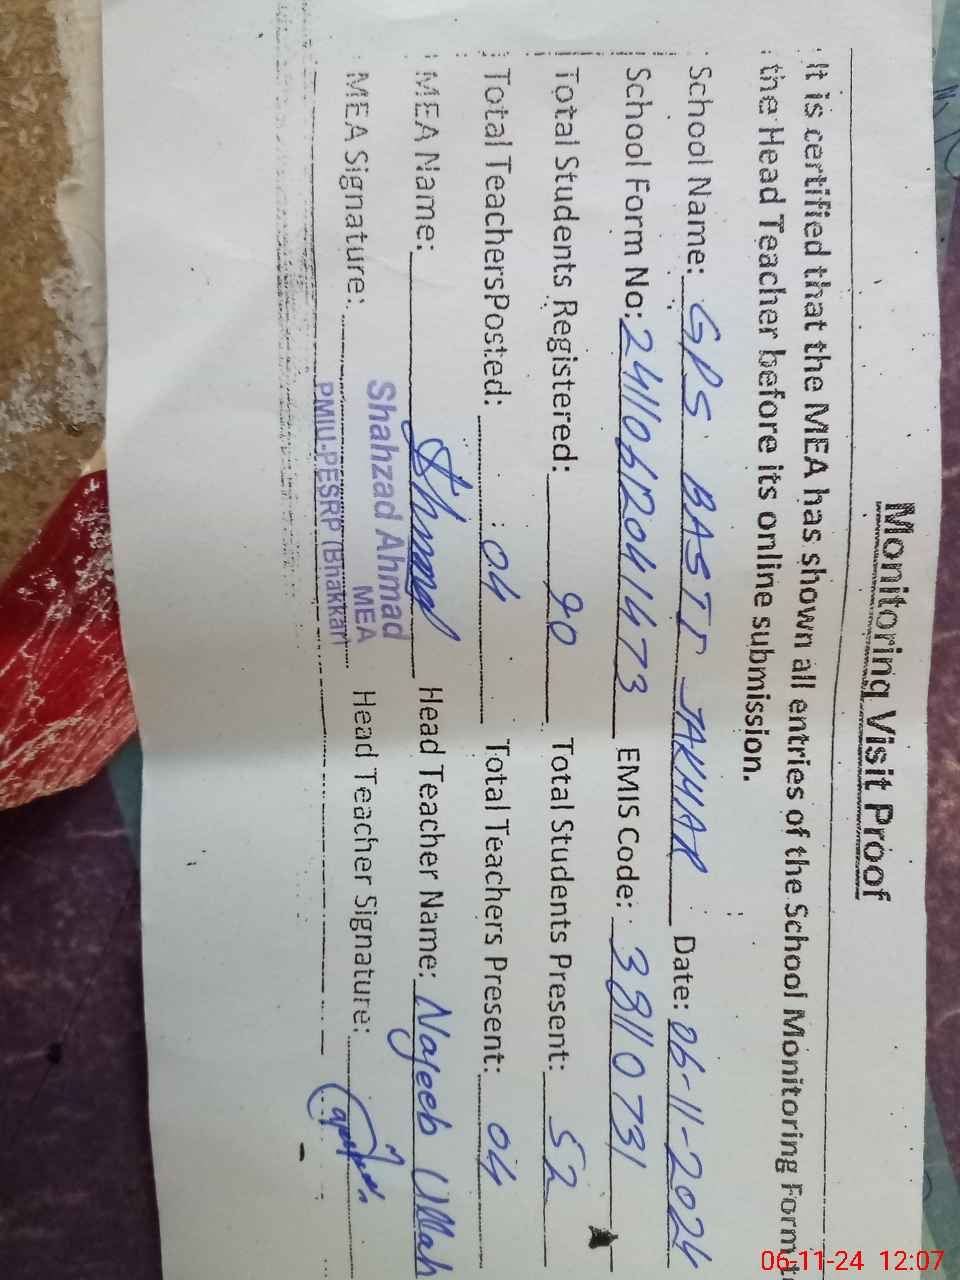 Monitoring Visit Proof
It is certified that the MEA has shown all entries of the School Monitoring Form t
the Head Teacher before its online submission.
School Name: GPS BASTI JAKHAR Date: 06-11-2024
School Form No: 24110612041473 EMIS Code: 38110731
Total Students Registered: 90 Total Students Present: 52
Total TeachersPosted: 04 Total Teachers Present: 04
MEA Name: Ahmad Head Teacher Name: Najeeb Ullah
MEA Signature: Shahzad Ahmad Head Teacher Signature:
MEA
PMIU-PESRP (Bhakkar)
06-11-24 12:07